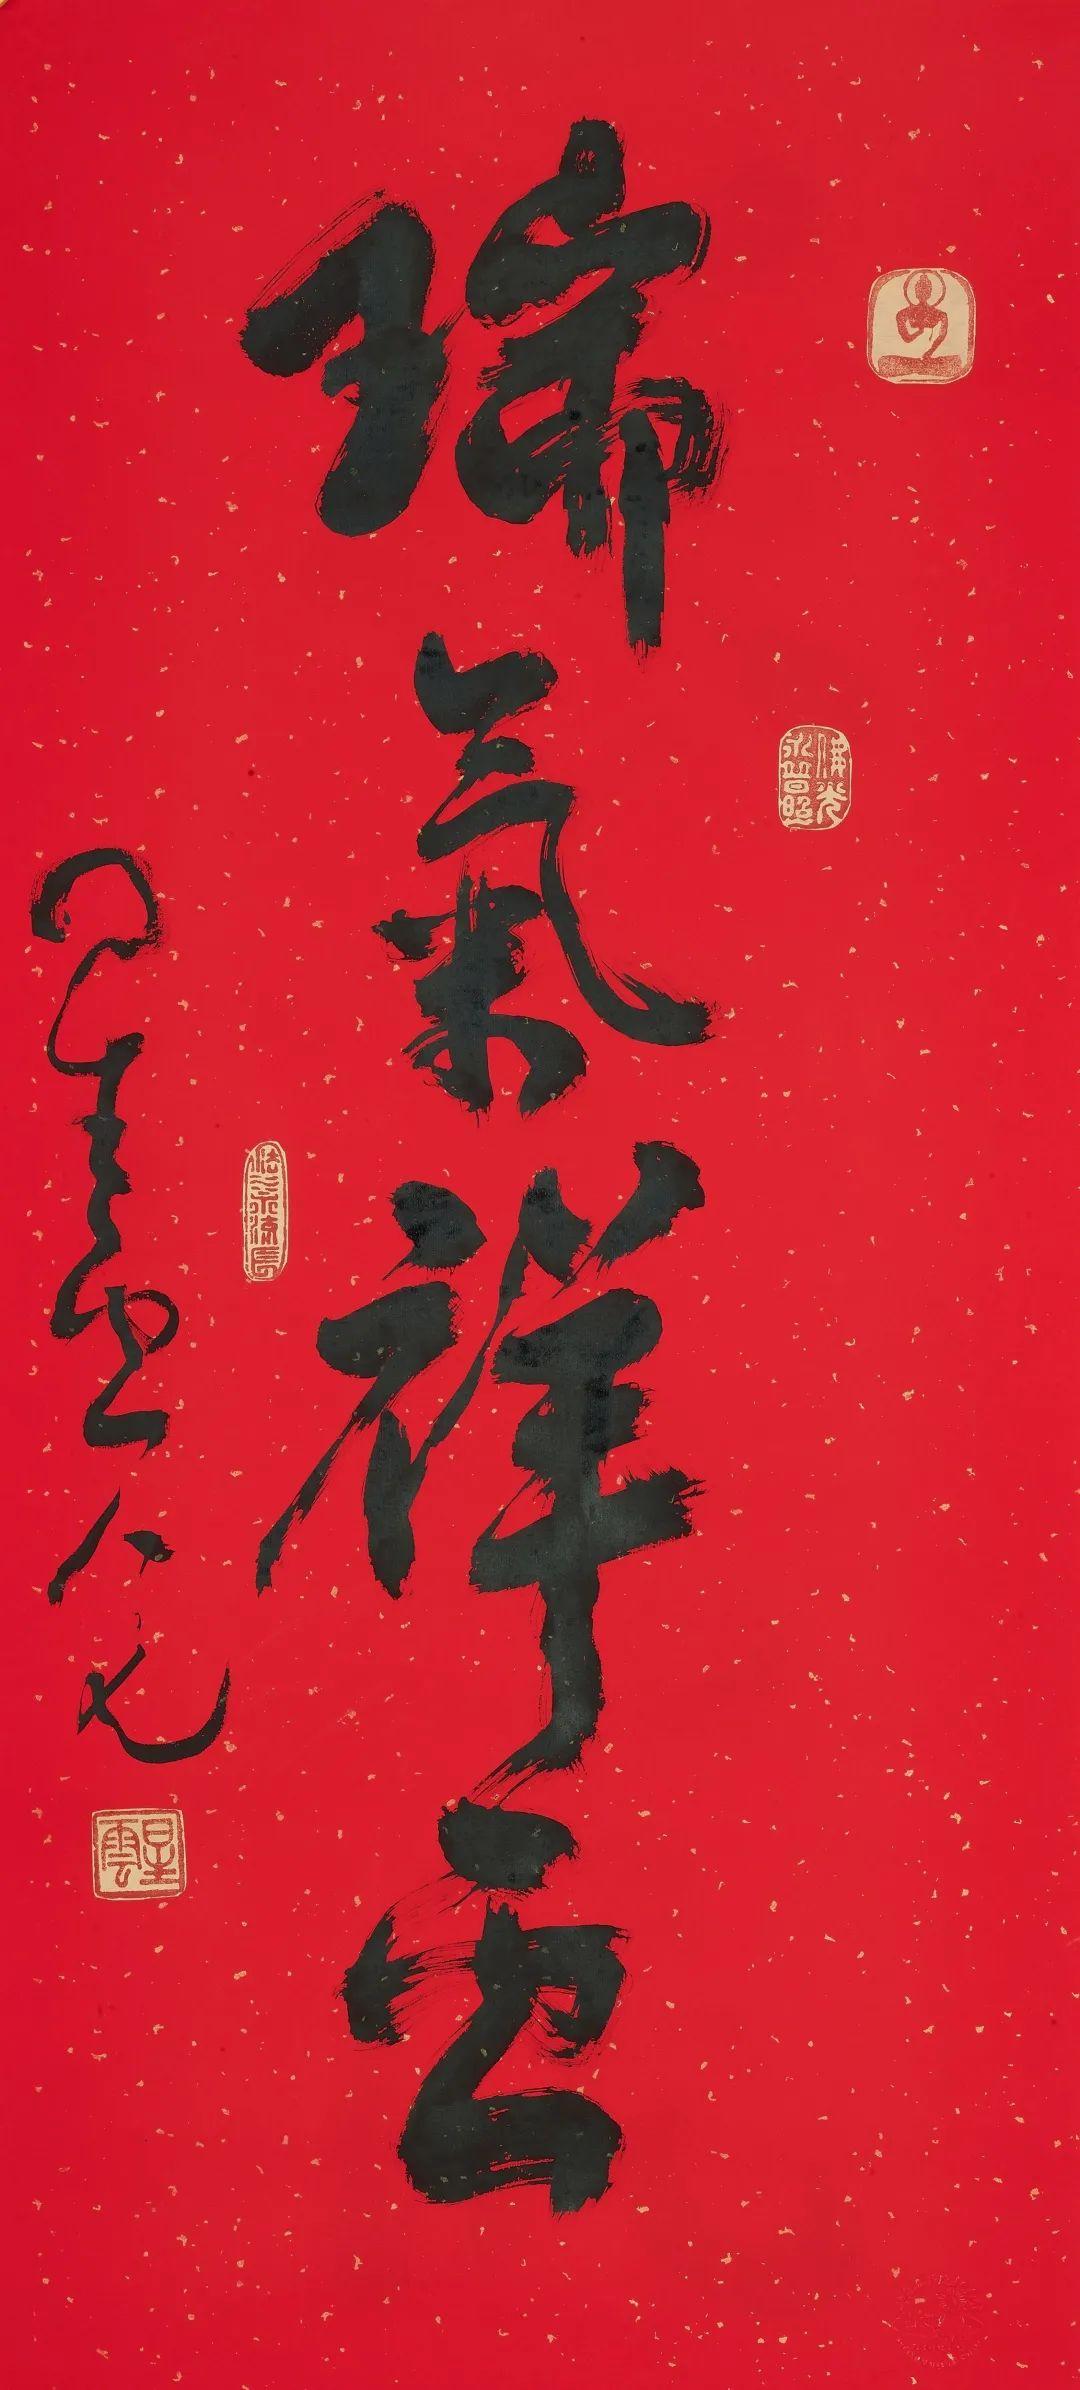 瑞氣祥雲
佛光永普照
星雲 八九
星雲